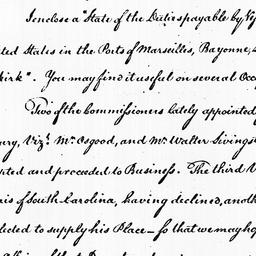 I enclose a "State of the Duties payable by Ve
ted States in the Ports of Marseilles, Bayonne,
kirk". You may find it useful on several Occ
Two of the Commissioners lately appointed
ury, Vizt. Mr. Osgood, and Mr. Walter Livings
pted and proceeded to Business. The third
is of South Carolina, having declined, anoth
lected to supply his Place—so that we may ho